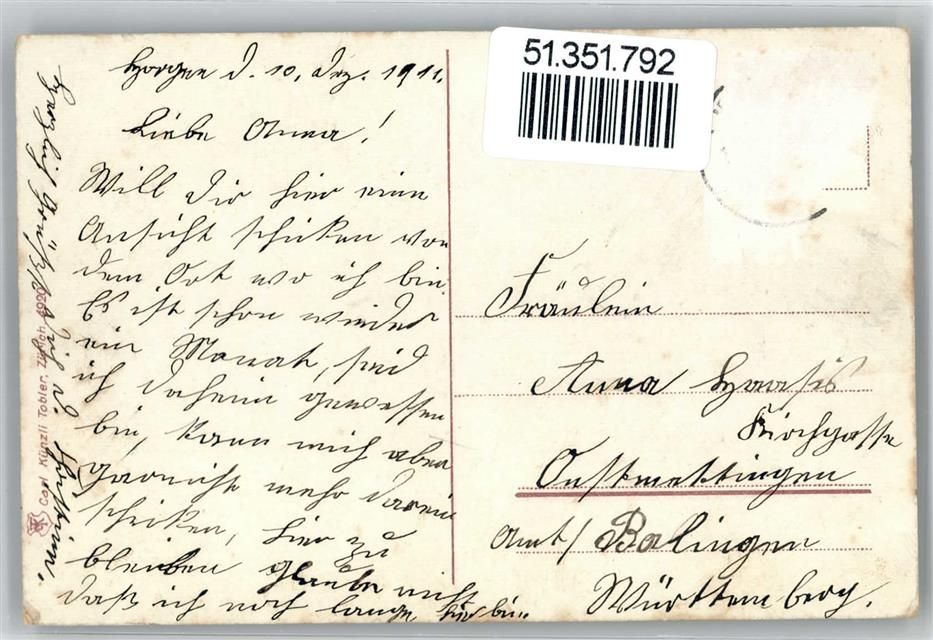 Horgen d. 10. Dez. 1911.
Liebe Anna!
Will dir hier eine
Ansicht schicken von
dem Ort wo ich bin.
Es ist schon wieder
ein Monat, seid
ich daheim gewessen
bin, kann mich aber
garnicht mehr darein
schiken, hier zu
bleiben glaube nicht
daß ich noch lange hier bin.
Herzlich grüßt dich d.
51.351.792
Fräulein
Anna Haasis
Kirchgasse
Onstmettingen
Amt/ Balingen
Württemberg.
Carl Künzli Tobler, Zürich 4920